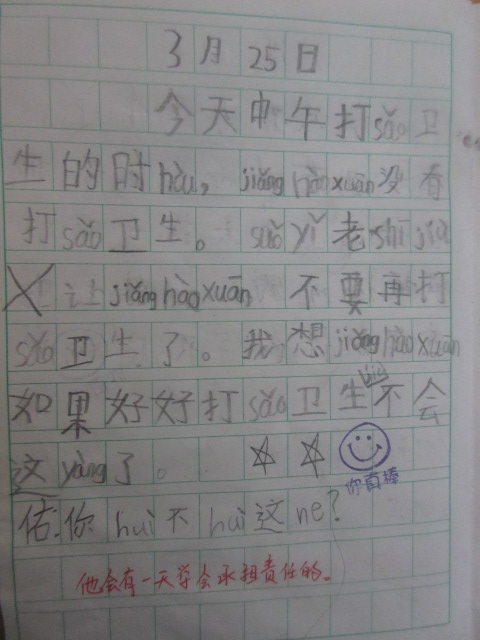 3月25日
今天中午打sǎo卫
生的时hòu，jiǎng hào xuān没有
打sǎo卫生。suǒ yǐ老shī jiù
让jiǎng hào xuān不要再打
sǎo卫生了。我想jiǎng hào xuān
如果好好打sǎo卫生jiù不会
这yàng了。
你真棒
估:你huì不huì这ne?
他会有一天学会承担责任的。